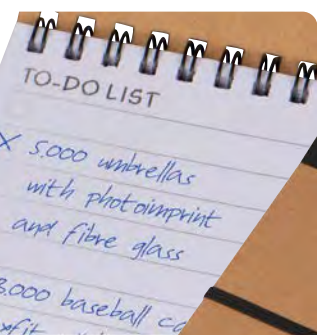 TO-DO LIST
× 5.000 umbrellas
with photoimprint
and fibre glass
3.000 baseball